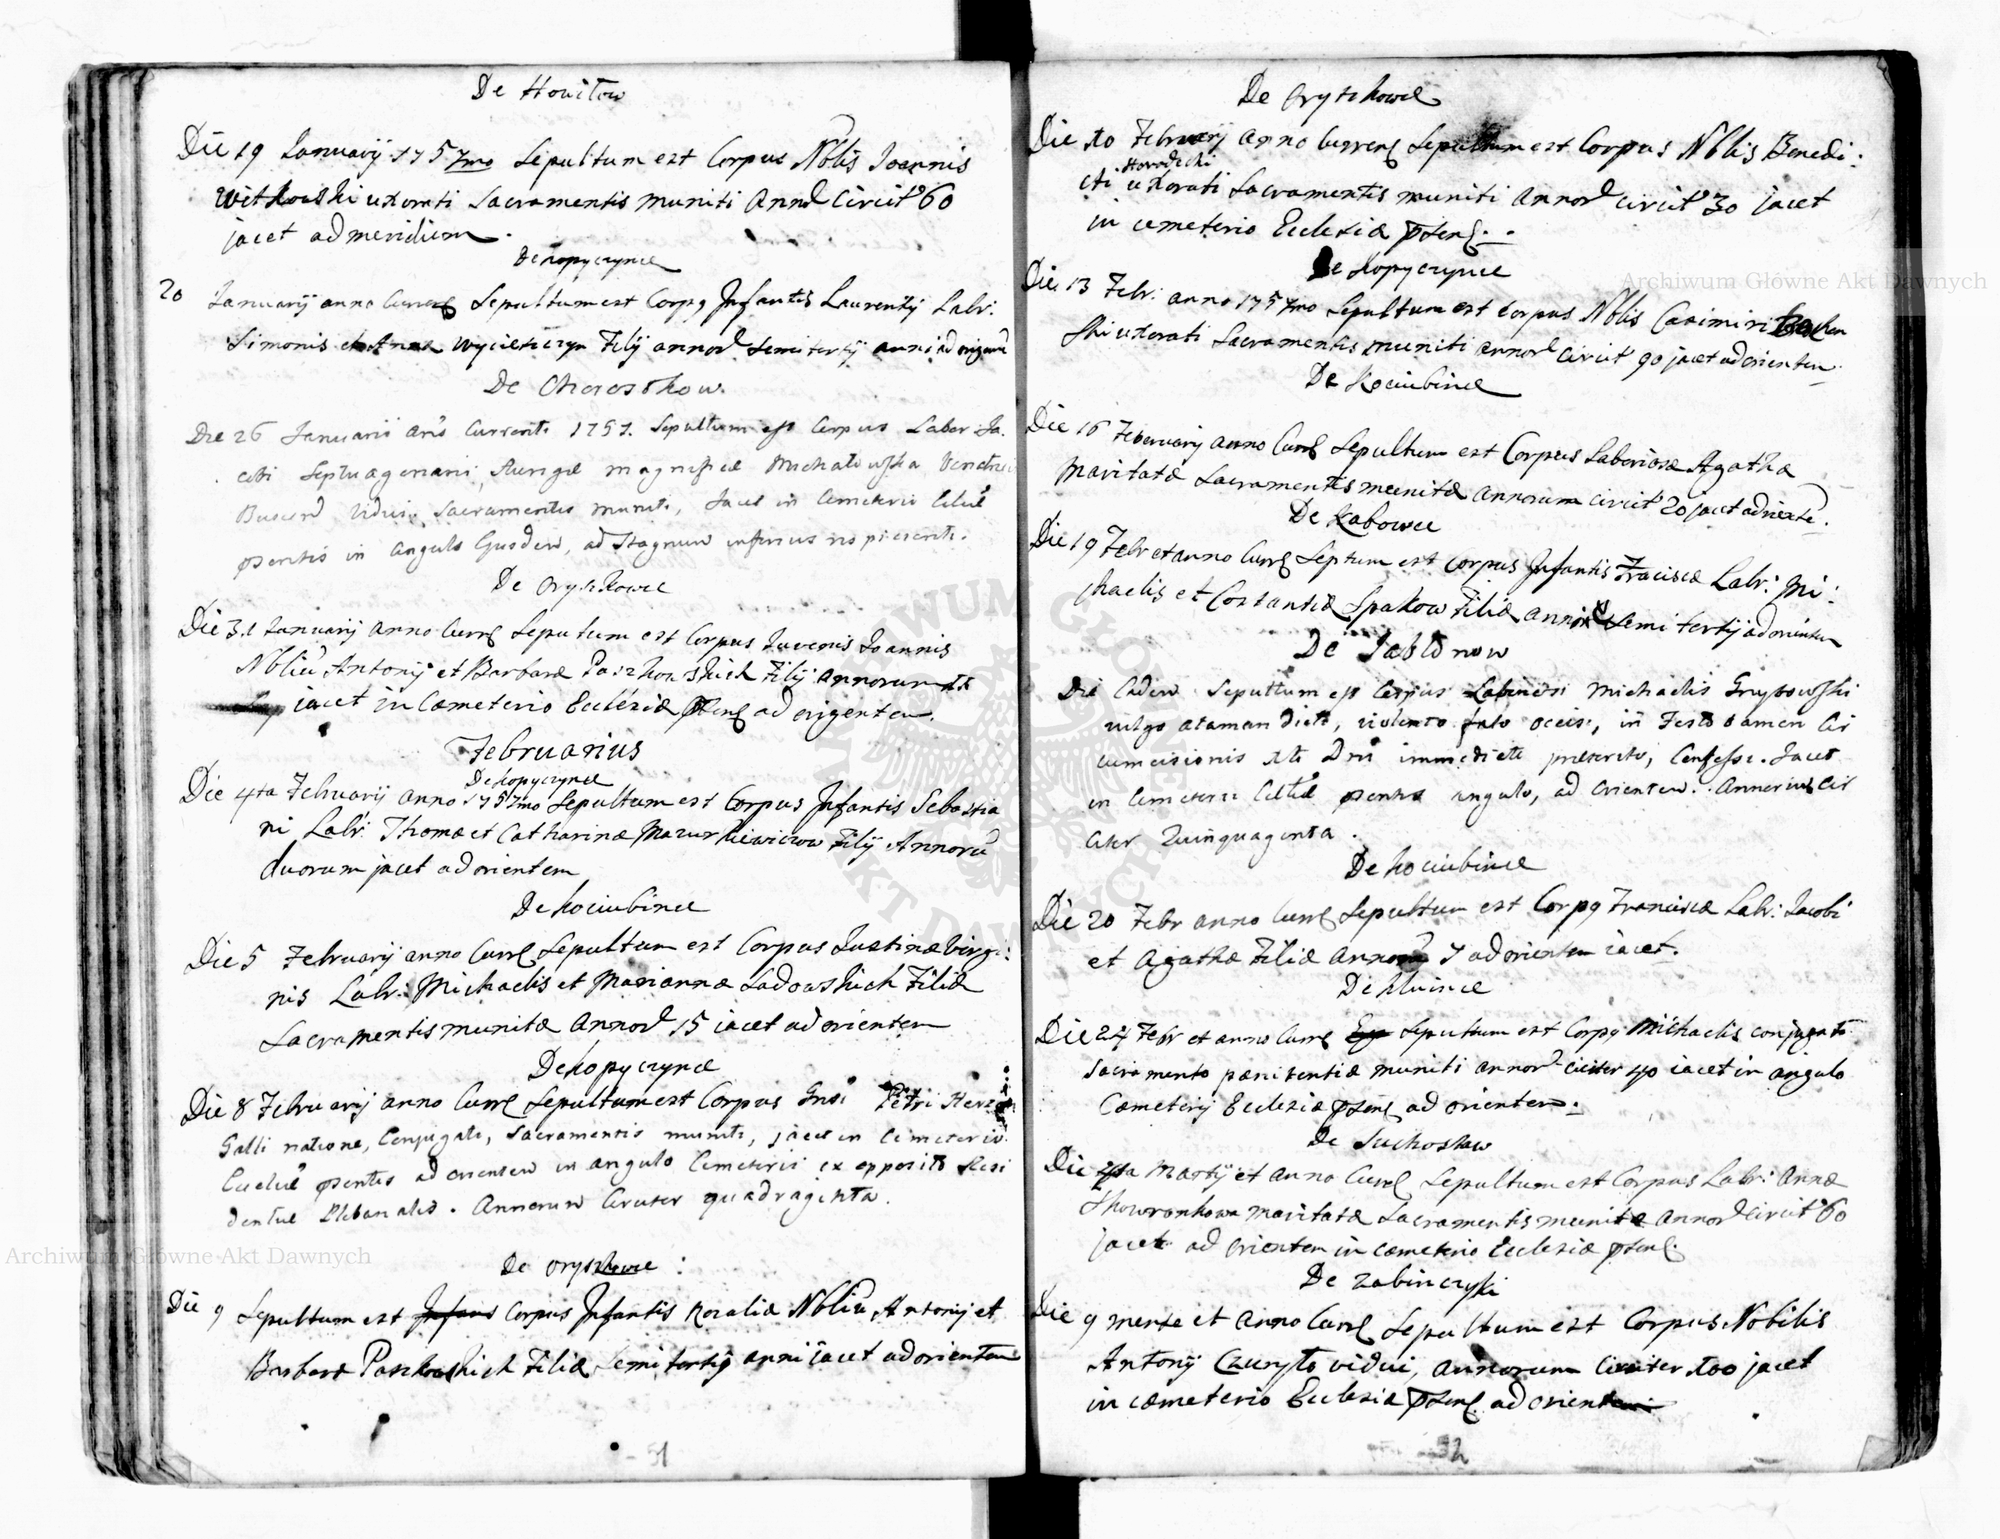 De Howilow
Die 19 Januarij 1757mo Sepultum est Corpus Nblis Joannis
Witkowski uxorati Sacramentis muniti Annor Circit 60
jacet ad meridiem.
De Kopyczynce
20 Januarij anno Curren Sepultum est Corpg Infantis Laurentij Labr:
Simonis et Anna Filij annor Semitertij anni ad
De Chorostkow.
Die 26 Januarii Currenti 1757. Sepultum est Corpus Labor: Ja.
cobi Septuagenarii, Aurigæ magnificæ Michałowska
vidui, Sacramentis muniti, Jacet in Cemeterio
psentis in angulo ad Stagnum inferius
De Oryszkowce
Die 31 Januarij anno Curre Seputum est Corpus Juvenis Joannis
Nbliu Antonij et Barbaræ Paszkowskich Filij annorum
jacet in Cæmeterio Ecclesiæ psens ad origentem.
Februarius
De Kopyczynce
Die 4ta Februarij anno 1757mo Sepultum est Corpus Infantis Sebastia
ni Labr: Thomæ et Catharinæ Mazurkiewiczow Filij Annoru
duorum jacet ad orientem
De Kociubince
Die 5 Februarij anno Curre Sepultum est Corpus Justinæ Virgi:
nis Labr: Michaelis et Mariannæ Sadowskich Filiæ
Sacramentis munitæ Annor 15 iacet ad orientem
De Kopyczynce
Die 8 Februarij anno Curre Sepultum est Corpus Gnsi Petri
Galli natione, Conjugati, Sacramentis muniti, jacet in Cemeterio
Ecclæ psentis ad orientem in angulo Cemeterii ex opposito Resi
dentiæ Plebanalis. Annorum Circiter quadraginta.
De Oryszkowce :
Die 9 Sepultum est Infans Corpus Infantis Rozaliæ Nbliu Antonij et
Barbaræ Paszkowskich Filiæ Semitertij anni iacet ad orientem
51
De Oryszkowce
Die 10 Februarij anno Currens Sepultum est Corpus Nblis Benedi:
Horodecki
cti uxorati Sacramentis muniti Annor circit 30 jacet
in cemeterio Ecclesiæ psens.
De Kopyczynce
Die 13 Febr: anno 1757mo Sepultum est corpus Nblis Casimiri
ski uxorati Sacramentis muniti annor Circit 90 jacet ad orientem
De Kociubince
Die 16 Februarij anno Curre Sepultum est Corpus Laboriosæ Agathæ
Maritatæ Sacramentis munitæ annorum circit 20 jacet ad
De Rabowce
Die 19 Febr et anno Curre Septum est Corpus Infantis Fraciscæ Labr: Mi:
chaelis et Costantiæ Spakow Filiæ anni Semitertij ad orientem
De Jabłonow
Die Eadem Sepultum est Corpus Laboriosi Michaelis Grybowski
vulgo ataman dicti, violento fato occisi, in Festo tamen Cir
cumcisionis Xti Dni immediate præterito, Confessi. Jacet
in Cemeterii psentis angulo, ad Orientem. Annorum Cir
citer Quinquaginta.
De Kociubince
Die 20 Febr anno Curre Sepultum est Corpg Franciscæ Labr: Jacobi
et Agathæ Filiæ Annoru 7 ad orientem iacet.
De Kluvince
Die 24 Febr et anno Curre Sepultum est Corpg Michaelis conjugati
Sacramento pænitentiæ muniti annor circiter 40 iacet in angulo
Cæmeterij Ecclesiæ psens ad orientem.
De Suchostaw
Die Martij et anno Curre Sepultum est Corpus Labr: Annæ
Skowronkowa maritatæ Sacramentis munitæ annor Circit 60
jacet ad orientem in cæmeterio Ecclesiæ psens.
De Zabinczyki
Die 9 mense et Anno Curre Sepultum est Corpus Nobilis
Antonij vidui, annorum Circiter 100 jacet
in cæmeterio Ecclesiæ psens ad orientem
52
Archiwum Główne Akt Dawnych
Archiwum Główne Akt Dawnych
ARCHIWUM GŁÓWNE AKT DAWNYCH